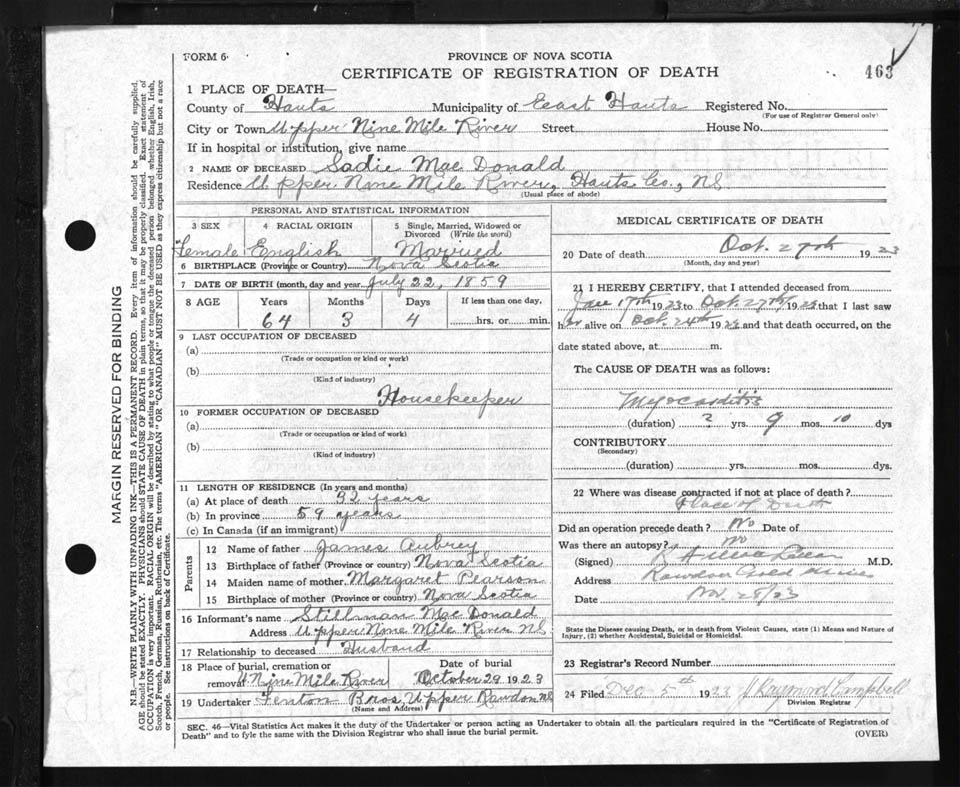 FORM 6
PROVINCE OF NOVA SCOTIA
463
CERTIFICATE OF REGISTRATION OF DEATH
1 PLACE OF DEATH—
County of Hants Municipality of East Hants Registered No.
(For use of Registrar General only)
City or Town Upper Nine Mile River Street House No.
If in hospital or institution, give name
2 NAME OF DECEASED Sadie MacDonald
Residence Upper Nine Mile River, Hants Co., NS.
(Usual place of abode)
PERSONAL AND STATISTICAL INFORMATION
3 SEX 4 RACIAL ORIGIN 5 Single, Married, Widowed or Divorced (Write the word)
Female English Married
6 BIRTHPLACE (Province or Country) Nova Scotia
7 DATE OF BIRTH (month, day and year) July 22, 1859
8 AGE Years Months Days If less than one day,
64 3 4 hrs. or min.
9 LAST OCCUPATION OF DECEASED
(a)
(Trade or occupation or kind or work)
(b)
(Kind of industry)
Housekeeper
10 FORMER OCCUPATION OF DECEASED
(a)
(Trade or occupation or kind of work)
(b)
(Kind of industry)
11 LENGTH OF RESIDENCE (In years and months)
(a) At place of death 32 years
(b) In province 59 years
(c) In Canada (if an immigrant)
Parents
12 Name of father James Aubrey
13 Birthplace of father (Province or country) Nova Scotia
14 Maiden name of mother Margaret Pearson
15 Birthplace of mother (Province or country) Nova Scotia
16 Informant's name Stillman MacDonald
Address Upper Nine Mile River NS
17 Relationship to deceased Husband
18 Place of burial, cremation or Date of burial
removal U Nine Mile River October 29 1923
19 Undertaker Fenton Bros, Upper Rawdon NS
(Name and Address)
MEDICAL CERTIFICATE OF DEATH
20 Date of death Oct. 27th 1923
(Month, day and year)
21 I HEREBY CERTIFY, that I attended deceased from
Jan 17th 1923 to Oct. 27th, 1923 that I last saw
her alive on Oct. 24th 1923 and that death occurred, on the
date stated above, at m.
The CAUSE OF DEATH was as follows:
Myocarditis
(duration) ? yrs. 9 mos. 10 dys
CONTRIBUTORY
(Secondary)
(duration) yrs. mos. dys.
22 Where was disease contracted if not at place of death?
Place of Death
Did an operation precede death? No Date of
Was there an autopsy? No
(Signed) M.D.
Address Rawdon Gold Mines
Date Nov. 28/23
State the Disease causing Death, or in death from Violent Causes, state (1) Means and Nature of
Injury, (2) whether Accidental, Suicidal or Homicidal.
23 Registrar's Record Number
24 Filed Dec 5th 1923 J Raymond Campbell
Division Registrar
SEC. 46—Vital Statistics Act makes it the duty of the Undertaker or person acting as Undertaker to obtain all the particulars required in the "Certificate of Registration of
Death" and to fyle the same with the Division Registrar who shall issue the burial permit.
(OVER)
MARGIN RESERVED FOR BINDING
N.B.—WRITE PLAINLY WITH UNFADING INK—THIS IS A PERMANENT RECORD. Every item of information should be carefully supplied.
AGE should be stated EXACTLY. PHYSICIANS should STATE CAUSE OF DEATH in plain terms, so that it may be properly classified. Exact statement of
OCCUPATION is very important. RACIAL ORIGIN will be described by stating to what people or tongue the deceased person belonged whether English, Irish,
Scotch, French, German, Russian, Ruthenian, etc. The terms "AMERICAN" or "CANADIAN" MUST NOT BE USED as they express citizenship but not a race
or people. See instructions on back of Certificate.